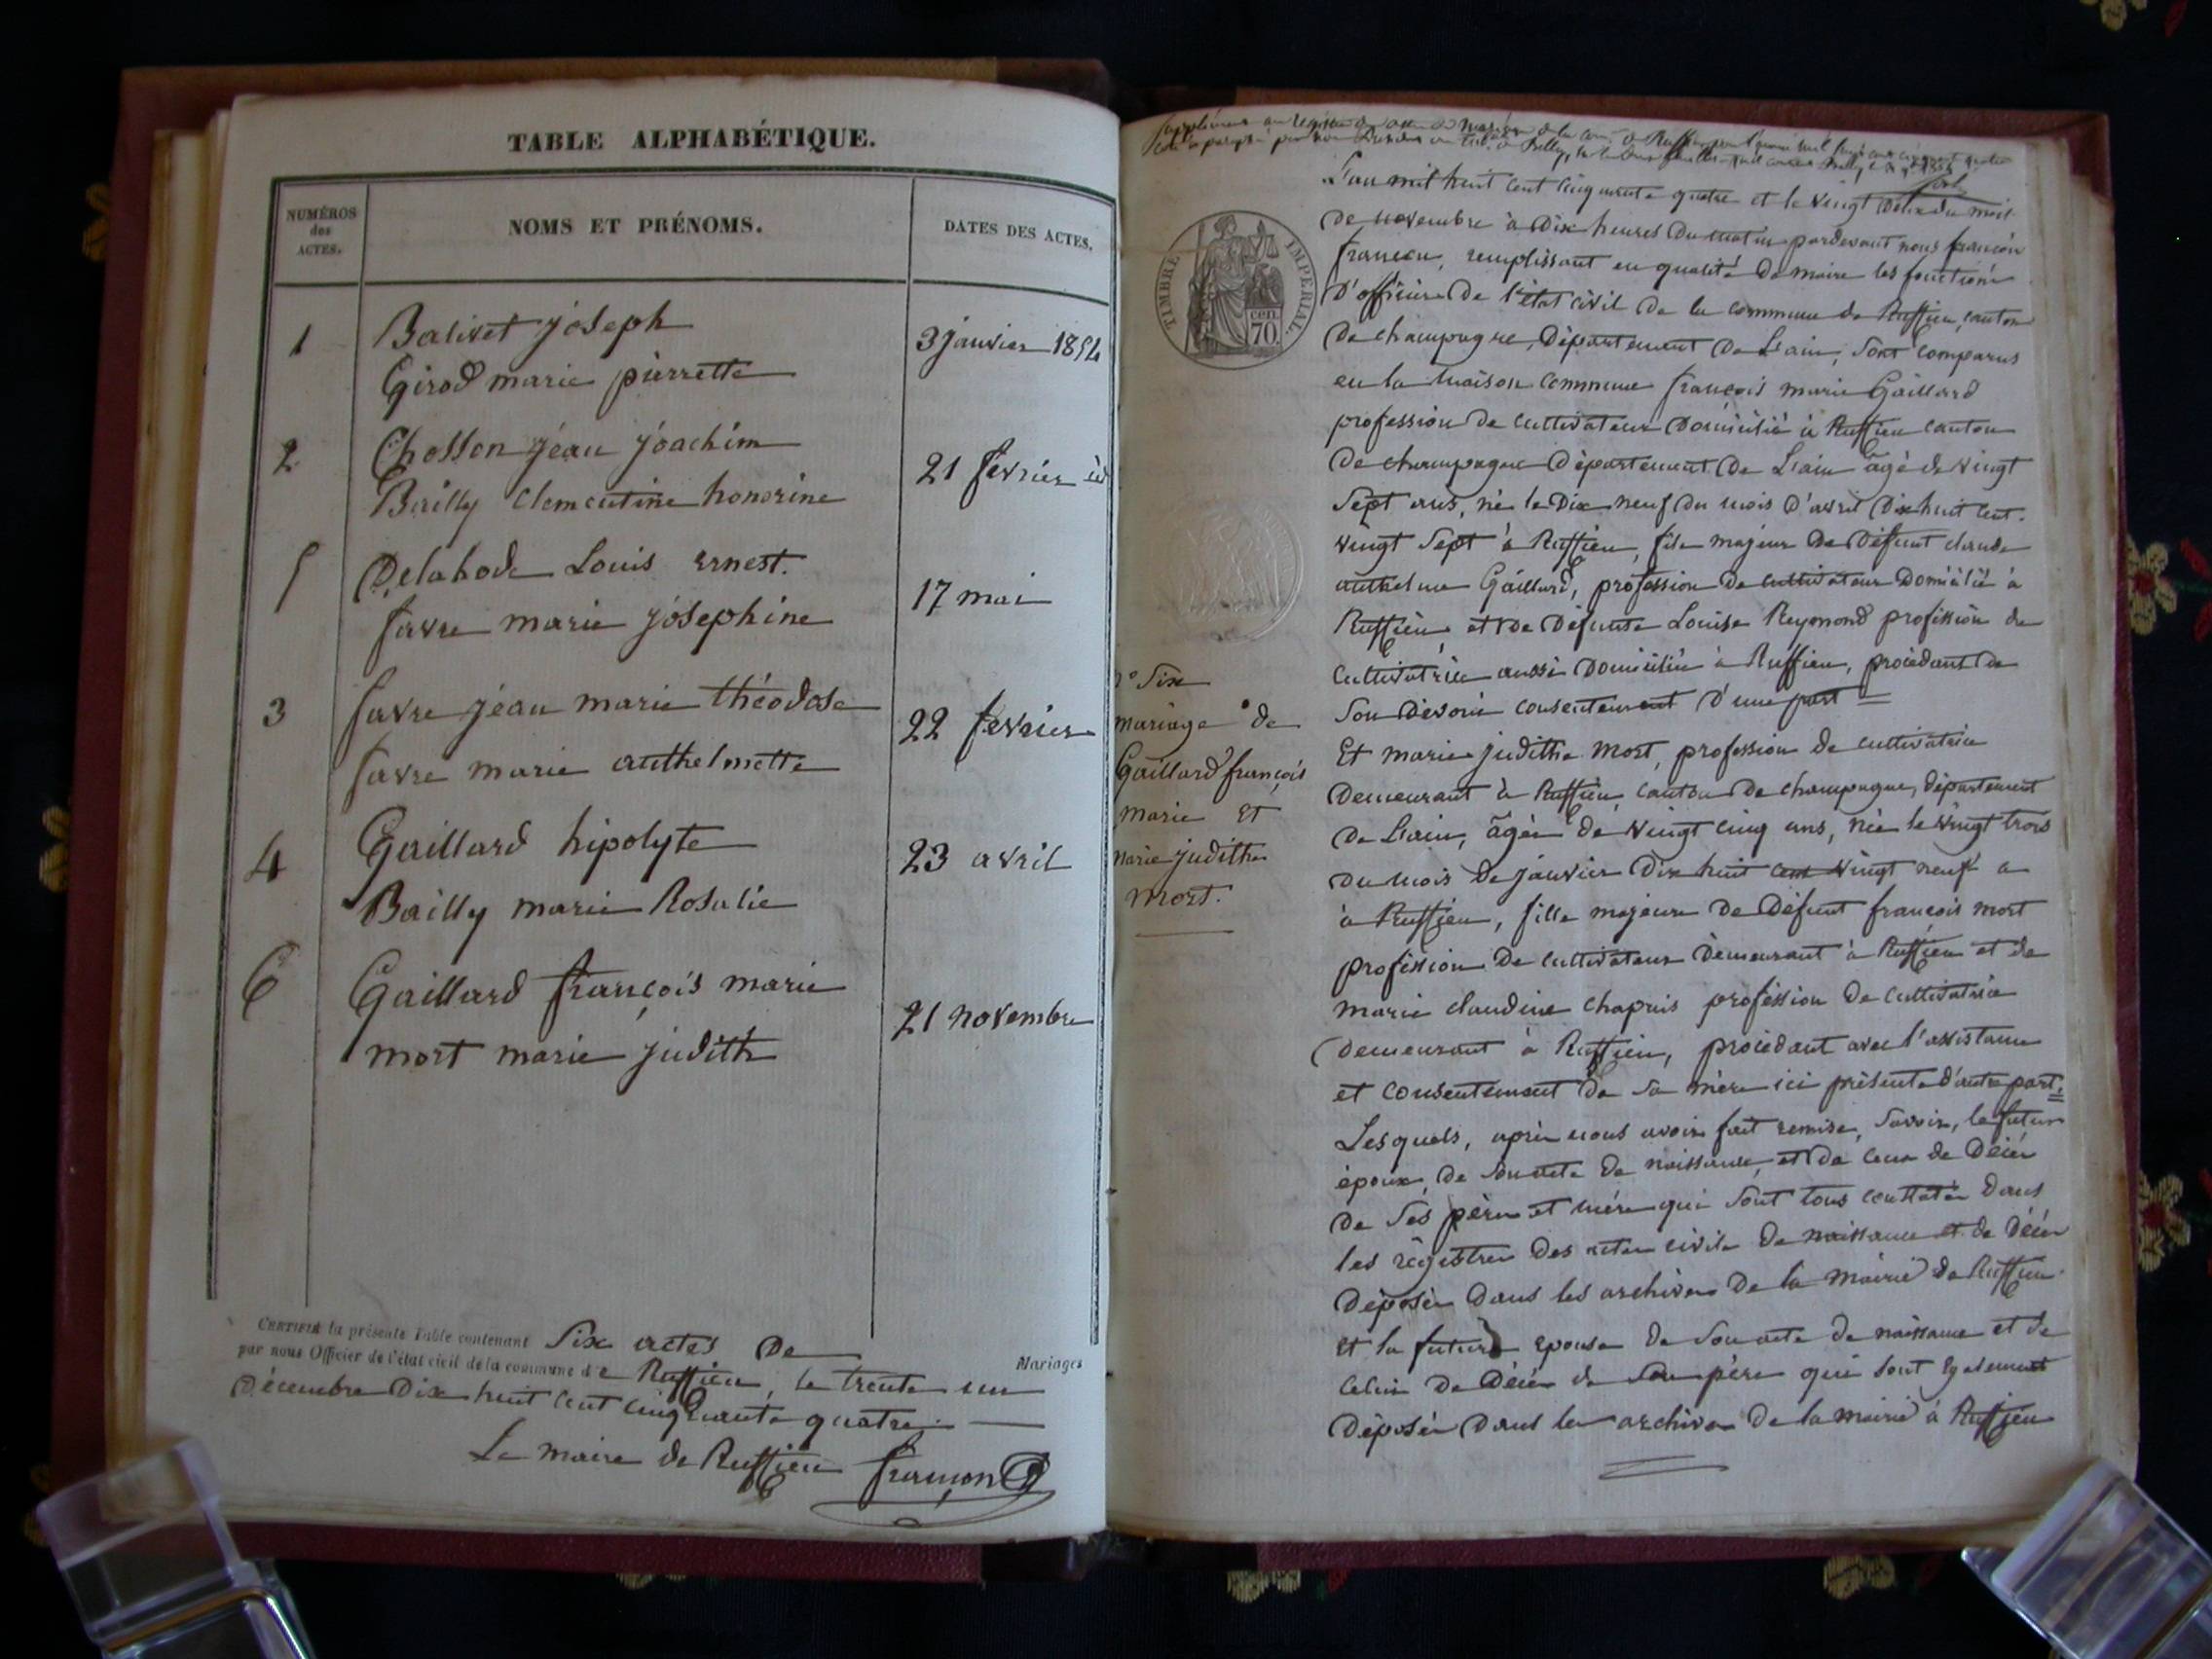 TABLE ALPHABÉTIQUE.
NUMÉROS
des
ACTES.
NOMS ET PRÉNOMS.
DATES DES ACTES.
1
Balivet joseph
Girod marie pierrette
3 janvier 1854
2
Chosson jéan joachim
Bailly clementine honorine
21 fevrier id
5
Delahode Louis ernest.
favre marie josephine
17 mai
3
favre jéan marie théodose
favre marie anthelmette
22 fevrier
4
Gaillard hipolyte
Bailly marie Rosalie
23 avril
6
Gaillard françois marie
mort marie judith
21 novembre
CERTIFIÉ la présente Table contenant Six actes De Mariages
par nous Officier de l'état civil de la commune de Ruffieu, le trente un
Décembre Dix huit cent cinquante quatre.
Le maire de Ruffieu françon
Supplément au registre des actes de mariage de la de Ruffieu pour l'année mil huit cent cinquante quatre
TIMBRE IMPERIAL.
cen.
70.
n° Six
mariage de
Gaillard françois
marie Et
marie judithe
mort.
L'an mil huit cent cinquante quatre et le vingt Deux du mois
De novembre à Dix heures Du matin pardevant nous françon
françon, remplissant en qualité De maire les fonctions
D'officier De l'état civil De la commune de Ruffieu, canton
De champagne, Département De L'ain, Sont comparus
en la maison commune françois marie Gaillard
profession De cultivateur Domicilié à Ruffieu canton
De champagne Département De L'ain âgé de vingt
Sept ans, né le Dix neuf Du mois D'avril Dix huit cent
vingt Sept à Ruffieu, fils majeur De Défunt claude
anthelme Gaillard, profession De cultivateur Domicilié à
Ruffieu, et De Défunte Louise Reymond profission de
cultivatrice aussi Domiciliée à Ruffieu, procédant De
Son consentement D'une part =
Et marie judithe Mort, profession de cultivatrice
Demeurant à Ruffieu canton De champagne, département
De L'ain, âgée de vingt cinq ans, née le vingt trois
Du mois De janvier Dix huit cent vingt neuf a
à Ruffieu, fille majeure De Défunt francois mort
profission De cultivateur Demeurant à Ruffieu et de
marie claudine chapuis profession De cultivatrice
Demeurant à Ruffieu, procédant avec l'assistance
et consentement De Sa mère ici présente D'autre part =
Lesquels, après nous avoir fait remise, Savoir, le futur
époux, De Son acte De naissance, et De ceux de Décès
De Ses père et mère qui Sont tous constatés Dans
les régistres Des actes civils De naissance et de Décès
Déposés Dans les archives De la mairie De Ruffieu
Et la future epouse De Son acte De naissance et de
celui De Décès de Son père qui Sont Egalement
Déposés Dans les archives De la mairie à Ruffieu